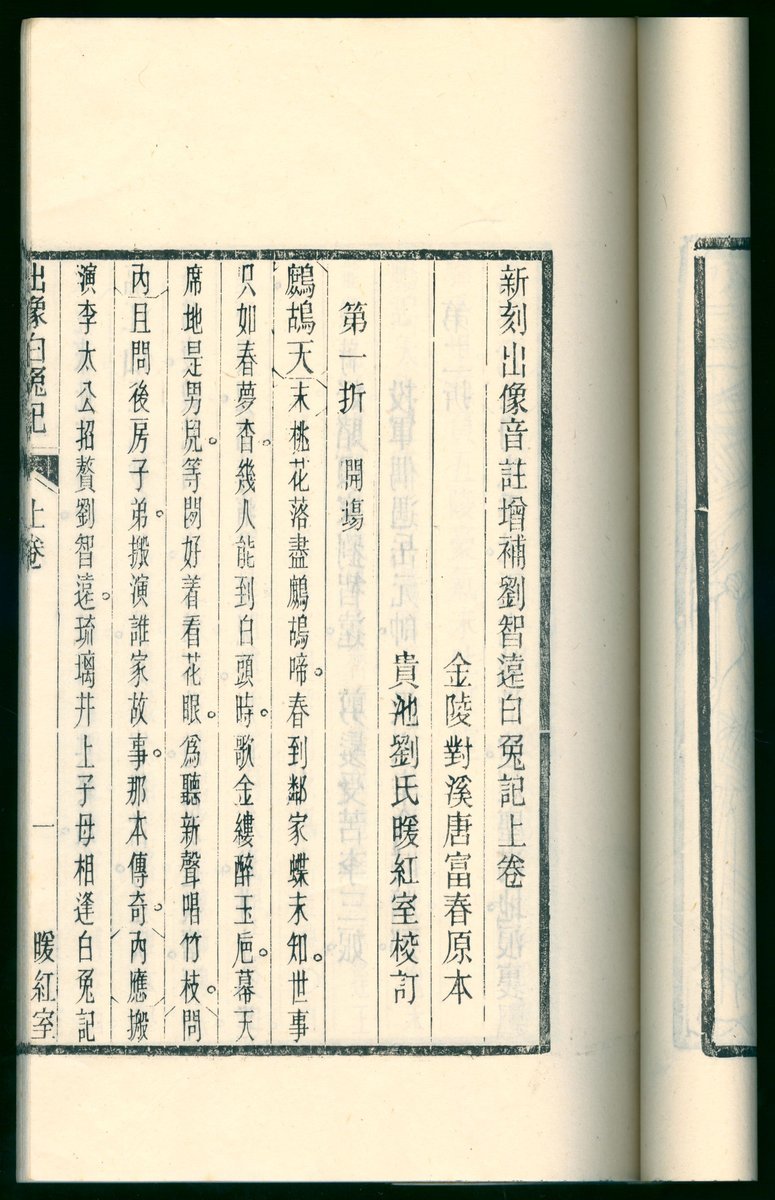 新刻出像音註增補劉智遠白兔記上卷
金陵對溪唐富春原本
貴池劉氏暖紅室校訂
第一折 開場
鷓鴣天末桃花落盡鷓鴣啼。春到鄰家蝶未知。世事
只如春夢杳。幾人能到白頭時。歌金縷醉玉巵。幕天
席地是男兒。等閒好着看花眼。爲聽新聲唱竹枝。問
內且問後房子弟。搬演誰家故事。那本傳奇。內應搬
演李太公招贅劉智遠。琉璃井上子母相逢白兔記
出像白兔記 上卷 一 暖紅室